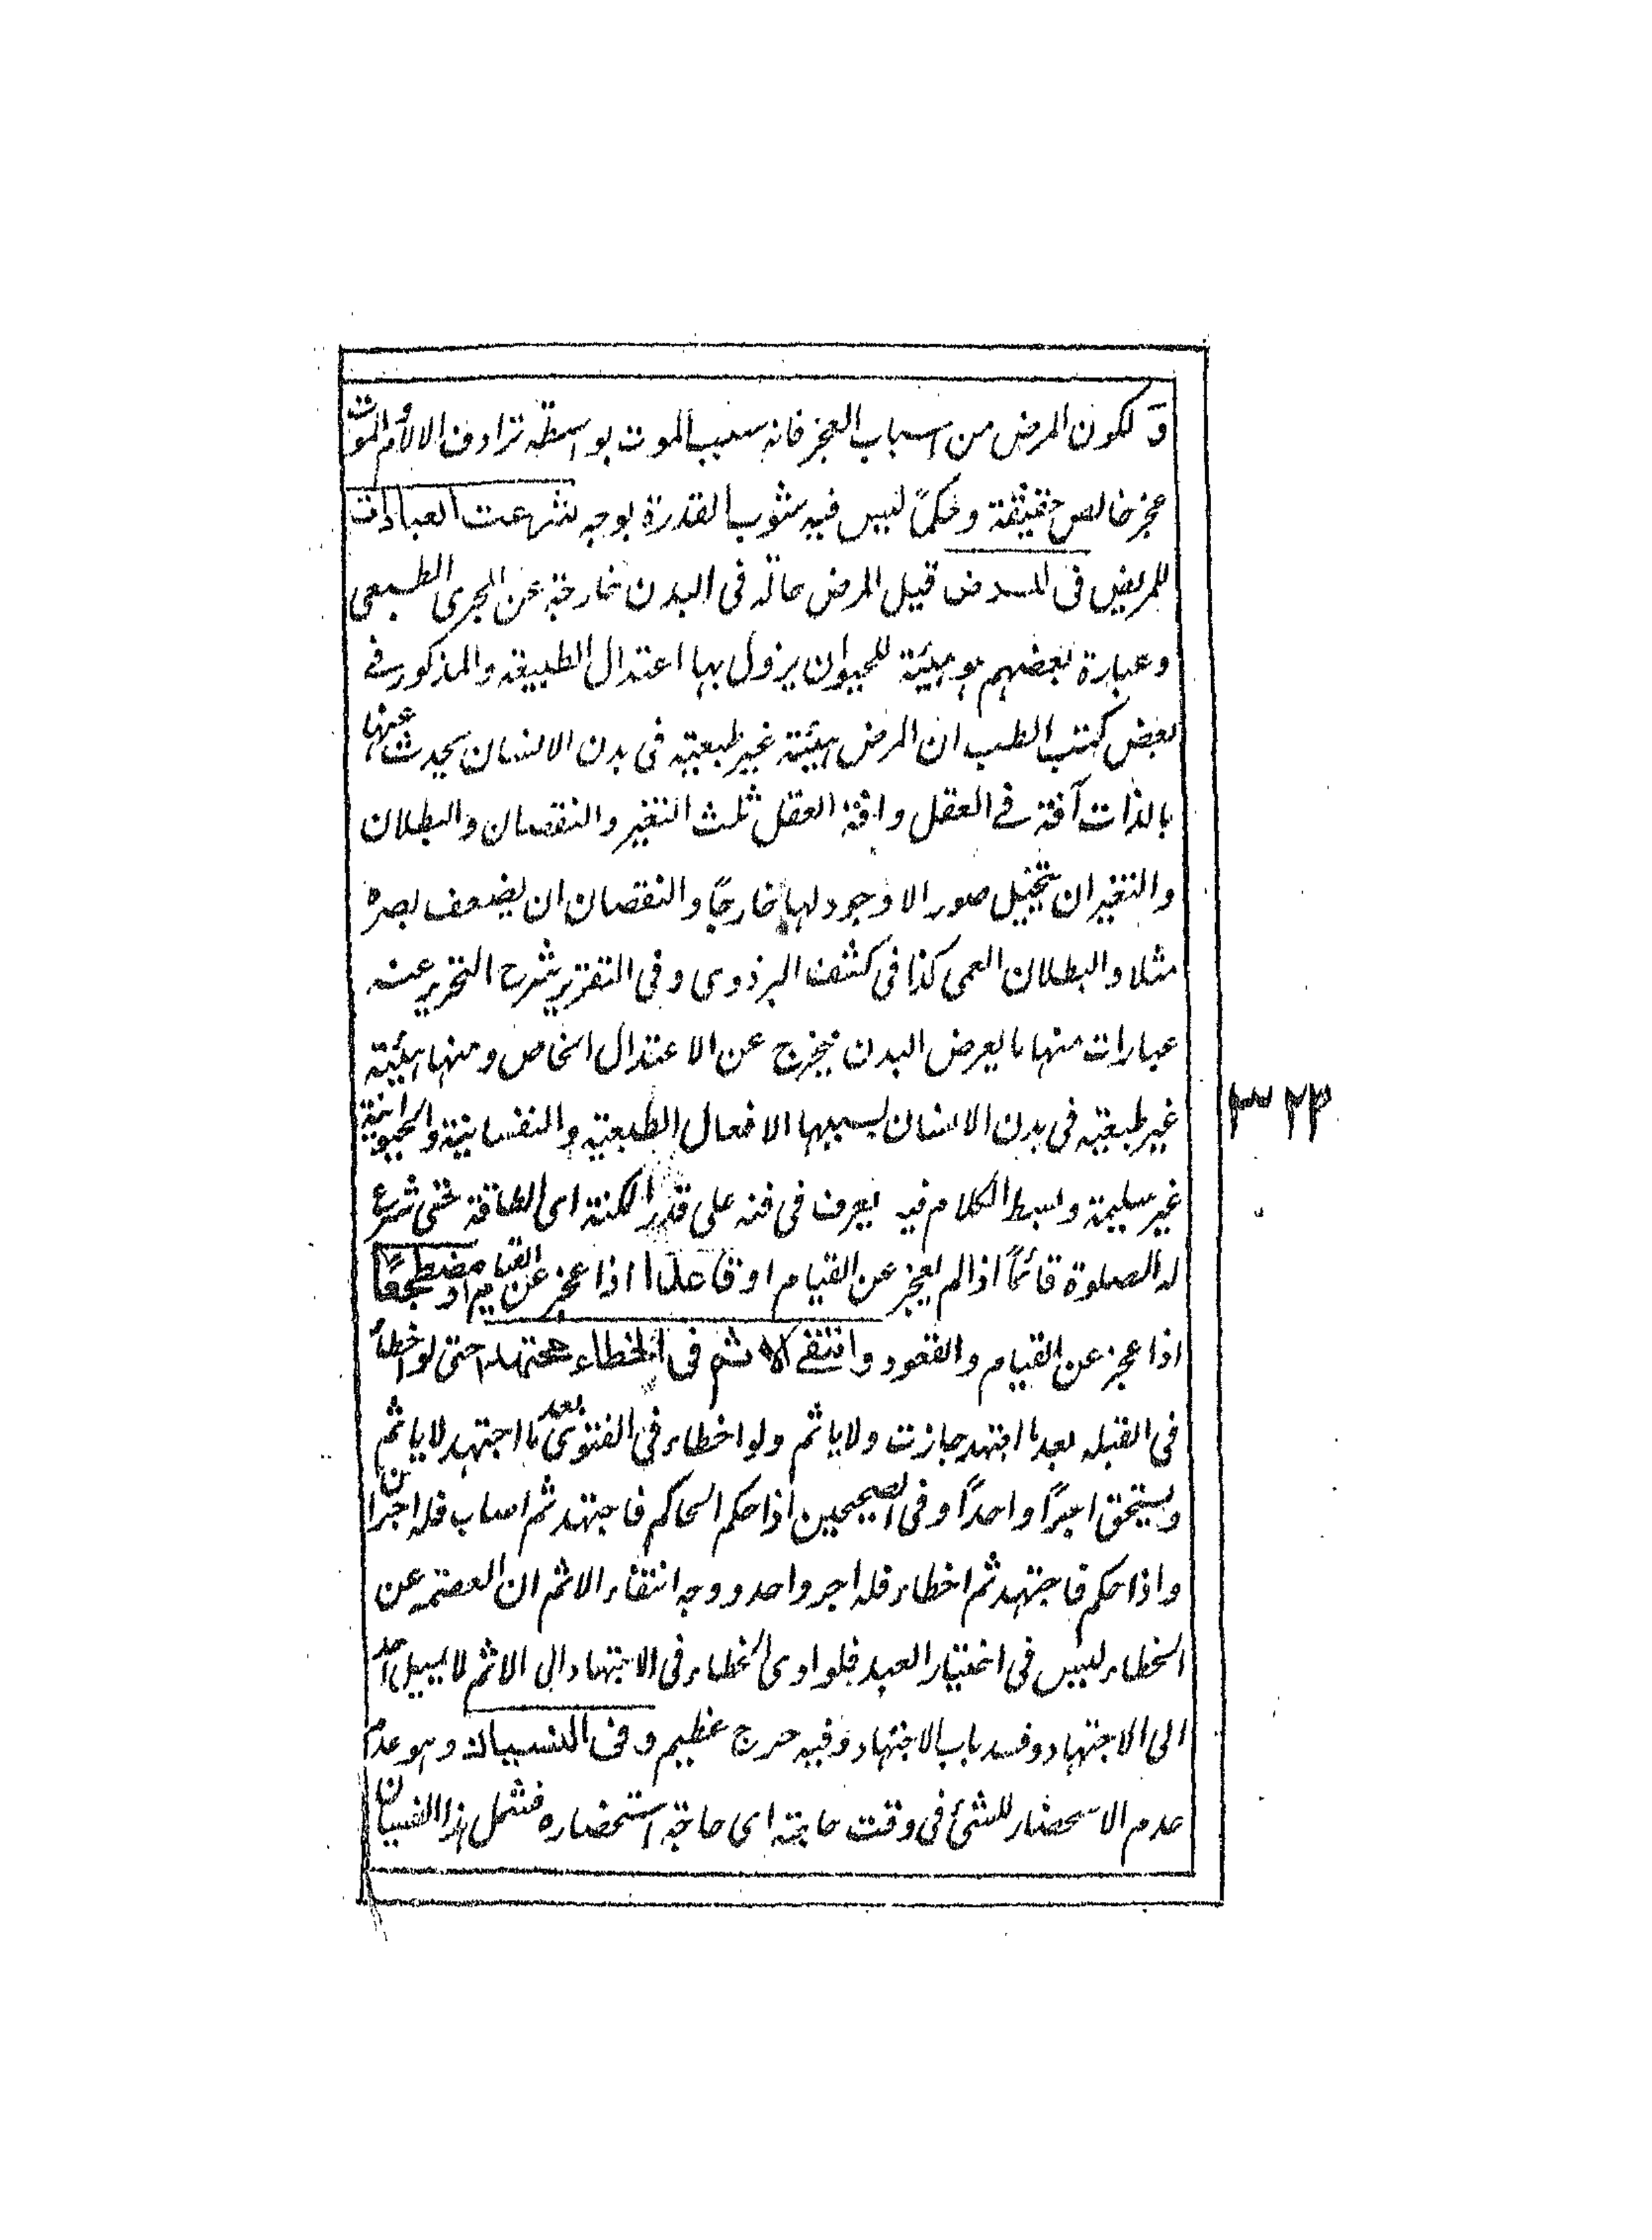 و لكون المرض من اسباب العجز فانه سبب الموت بواسطة ترادف الالام والموت
عجز خالص حقيقة وحكمًا ليس فيه شوب القدرة بوجه شرعت العبادات
للمريض فى المرض قيل المرض حالة فى البدن خارجة عن المجرى الطبيعى
وعبارة بعضهم هو هيئة للحيوان يزول بها اعتدال الطبيعة والمذكور فى
بعض كتب الطب ان المرض هيئة غير طبعية فى بدن الانسان يحدث عنها
بالذات آفة فى العقل وافة العقل ثلث التغير والنقصان والبطلان
والتغير ان يتخيل صور الا وجود لها خارجًا والنقصان ان يضعف بصره
مثلا والبطلان العمى كذا فى كشف البزدوى وفى التقرير شرح التحرير عنه
عبارات منها ما يعرض البدن فيخرج عن الاعتدال الخاص ومنها هيئة
غير طبعية فى بدن الانسان بسببها الافعال الطبعية والنفسانية والحيوانية
غير سليمة وبسط الكلام فيه يعرف فى فنه على قدر المكنة اى الطاقة حتى شرع
له الصلوة قائمًا اذا لم يعجز عن القيام او قاعدا اذا عجز عن القيام او مضطجعًا
اذا عجز عن القيام والقعود وانتفى الاثم فى الخطاء مجتهدا حتى لو اخطأ
فى القبلة بعد ما اجتهد جازت ولا ياثم ولو اخطاء فى الفتوى بعد ما اجتهد لا ياثم
ويستحق اجرًا واحدًا وفى الصحيحين اذا حكم الحاكم فاجتهد ثم اصاب فله اجران
واذا حكم فاجتهد ثم اخطاء فله اجر واحد ووجه انتفاء الاثم ان العصمة عن
الخطاء ليس فى اختيار العبد فلو ادى الخطاء فى الاجتهاد الى الاثم لا يسيل احد
الى الاجتهاد وفسد باب الاجتهاد وفيه حرج عظيم وفى النسيان وهو عدم
عدم الاستحضار للشئ فى وقت حاجته اى حاجة استحضاره فشمل هذا النسيان
٣٢٣